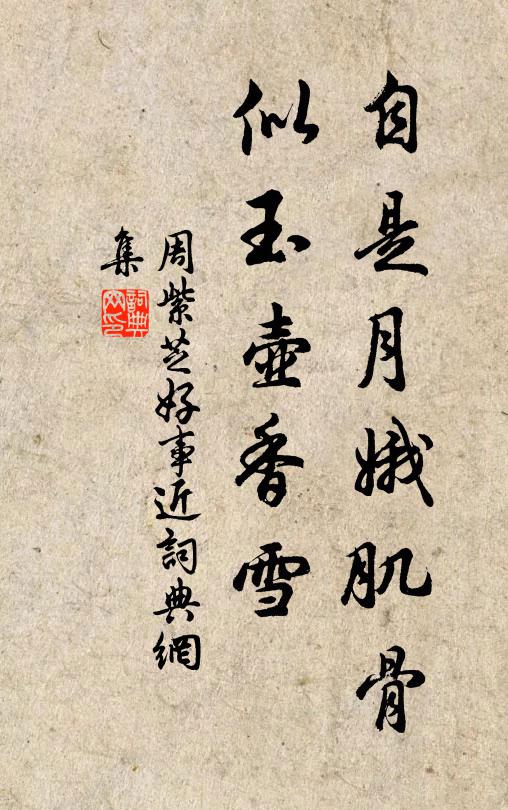 自是月娥肌骨
似玉壺香雪
周紫芝好事近詞典網
集
詞典
网印